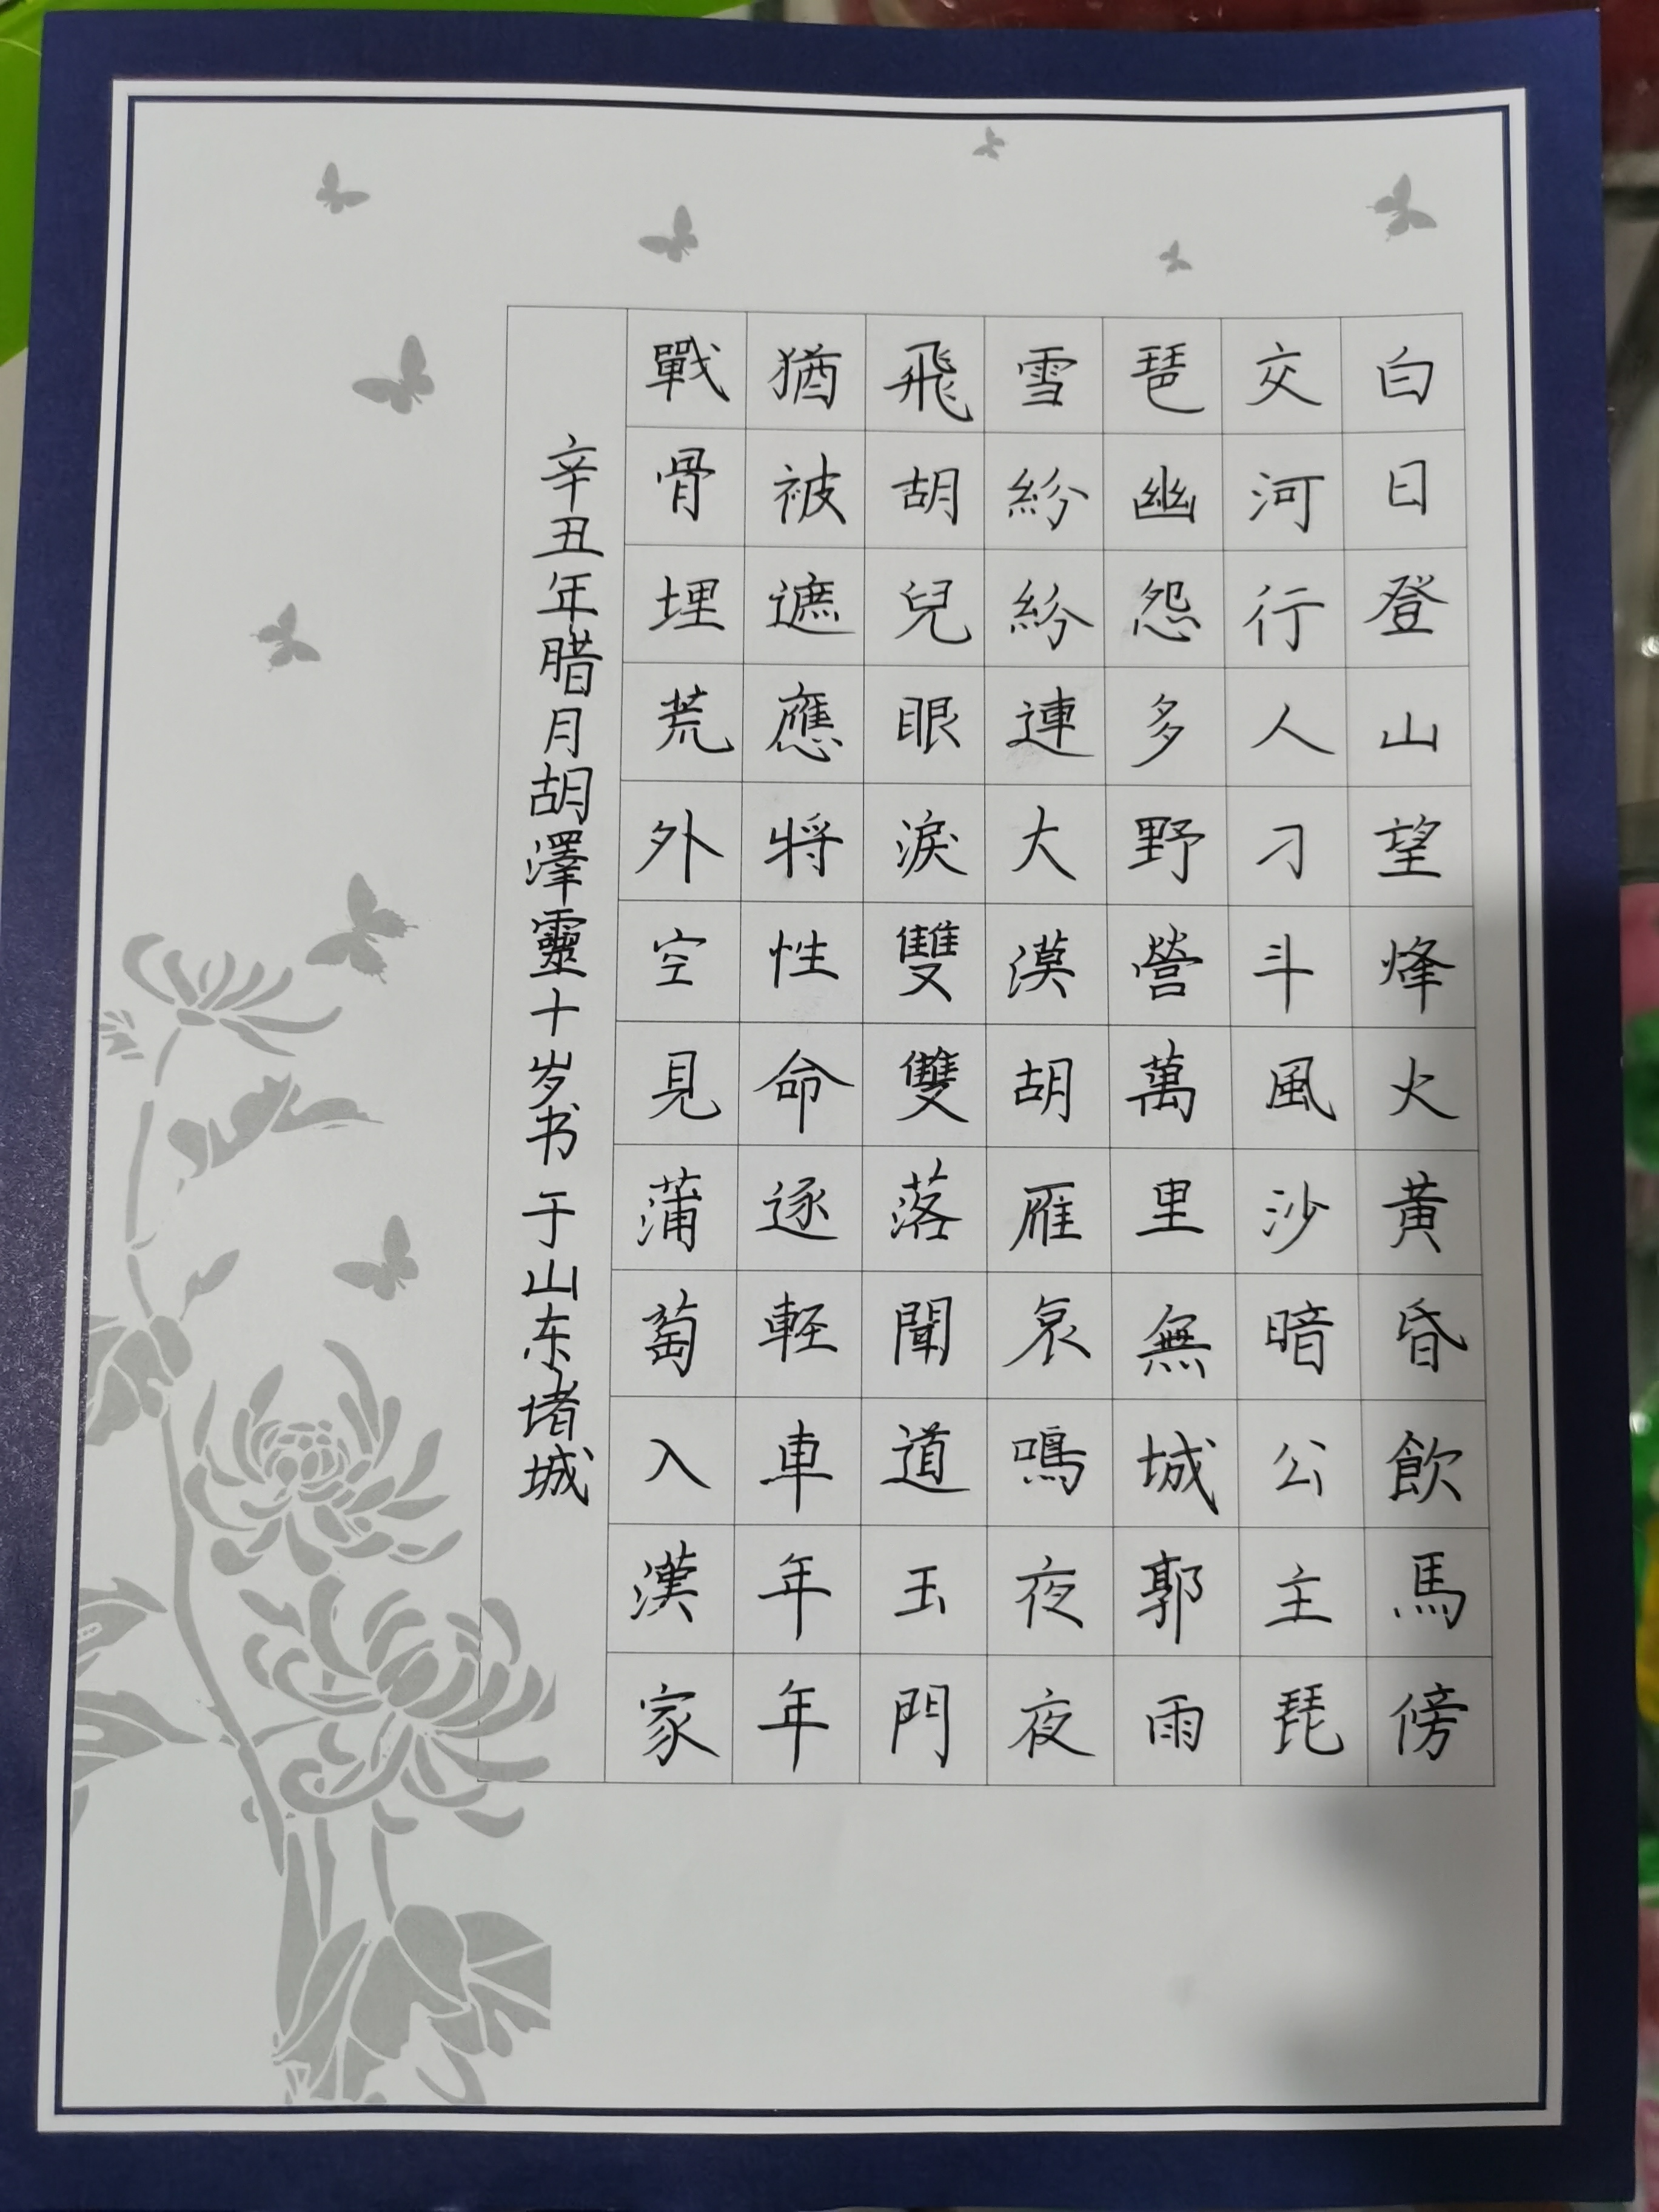 白日登山望烽火黃昏飲馬傍
交河行人刁斗風沙暗公主琵
琶幽怨多野營萬里無城郭雨
雪紛紛連大漠胡雁哀鳴夜夜
飛胡兒眼淚雙雙落聞道玉門
猶被遮應將性命逐輕車年年
戰骨埋荒外空見蒲萄入漢家
辛丑年腊月胡澤靈十岁书于山东堵城